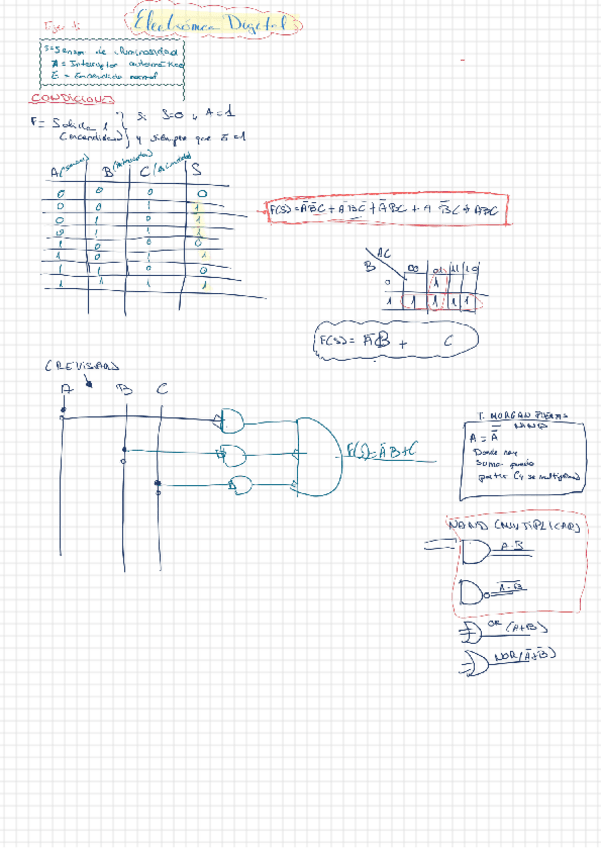 Ejer 1:
Electrónica Digital
S=Sensor de luminosidad
A = Interruptor automático
E = Encendido normal
CONDICIONES
F= Salida 1 (encendido) } Si S=0 y A=1
y siempre que E=1
A (sensor) B C S
0 0 0 0
0 0 1 1
0 1 0 1
0 1 1 1
1 0 0 0
1 0 1 1
1 1 0 0
1 1 1 1
F(S)= A̅B̅C + A̅BC̅ + A̅BC + AB̅C + ABC
AC
B 00 01 11 10
0 1
1 1 1 1 1
F(S)= A̅B + C
(REVISAR)
A B C
F(S)=A̅B+C
T. MORGAN PUERTAS NAND
A = A̿
Donde hay
suma puedo
partir C y se multiplican
NAND (MULTIPLICAR)
A·B
A̅·̅B̅
OR (A+B)
NOR (A̅+B̅)